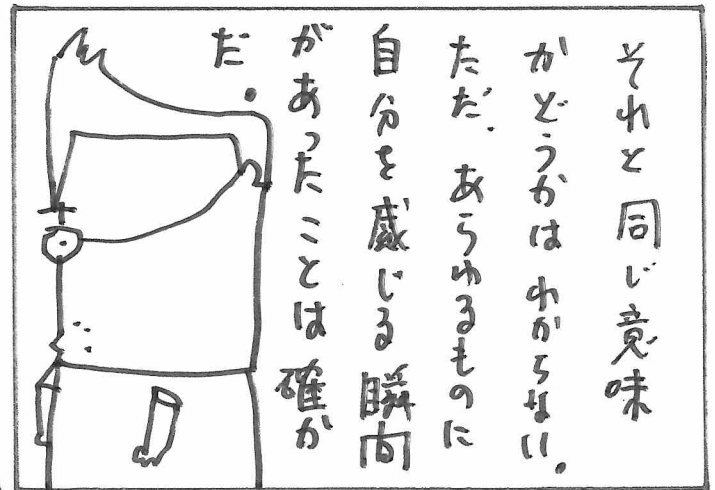 それと同じ意味
かどうかはわからない.
ただ.あらゆるものに
自分を感じる瞬間
があったことは確か
だ.